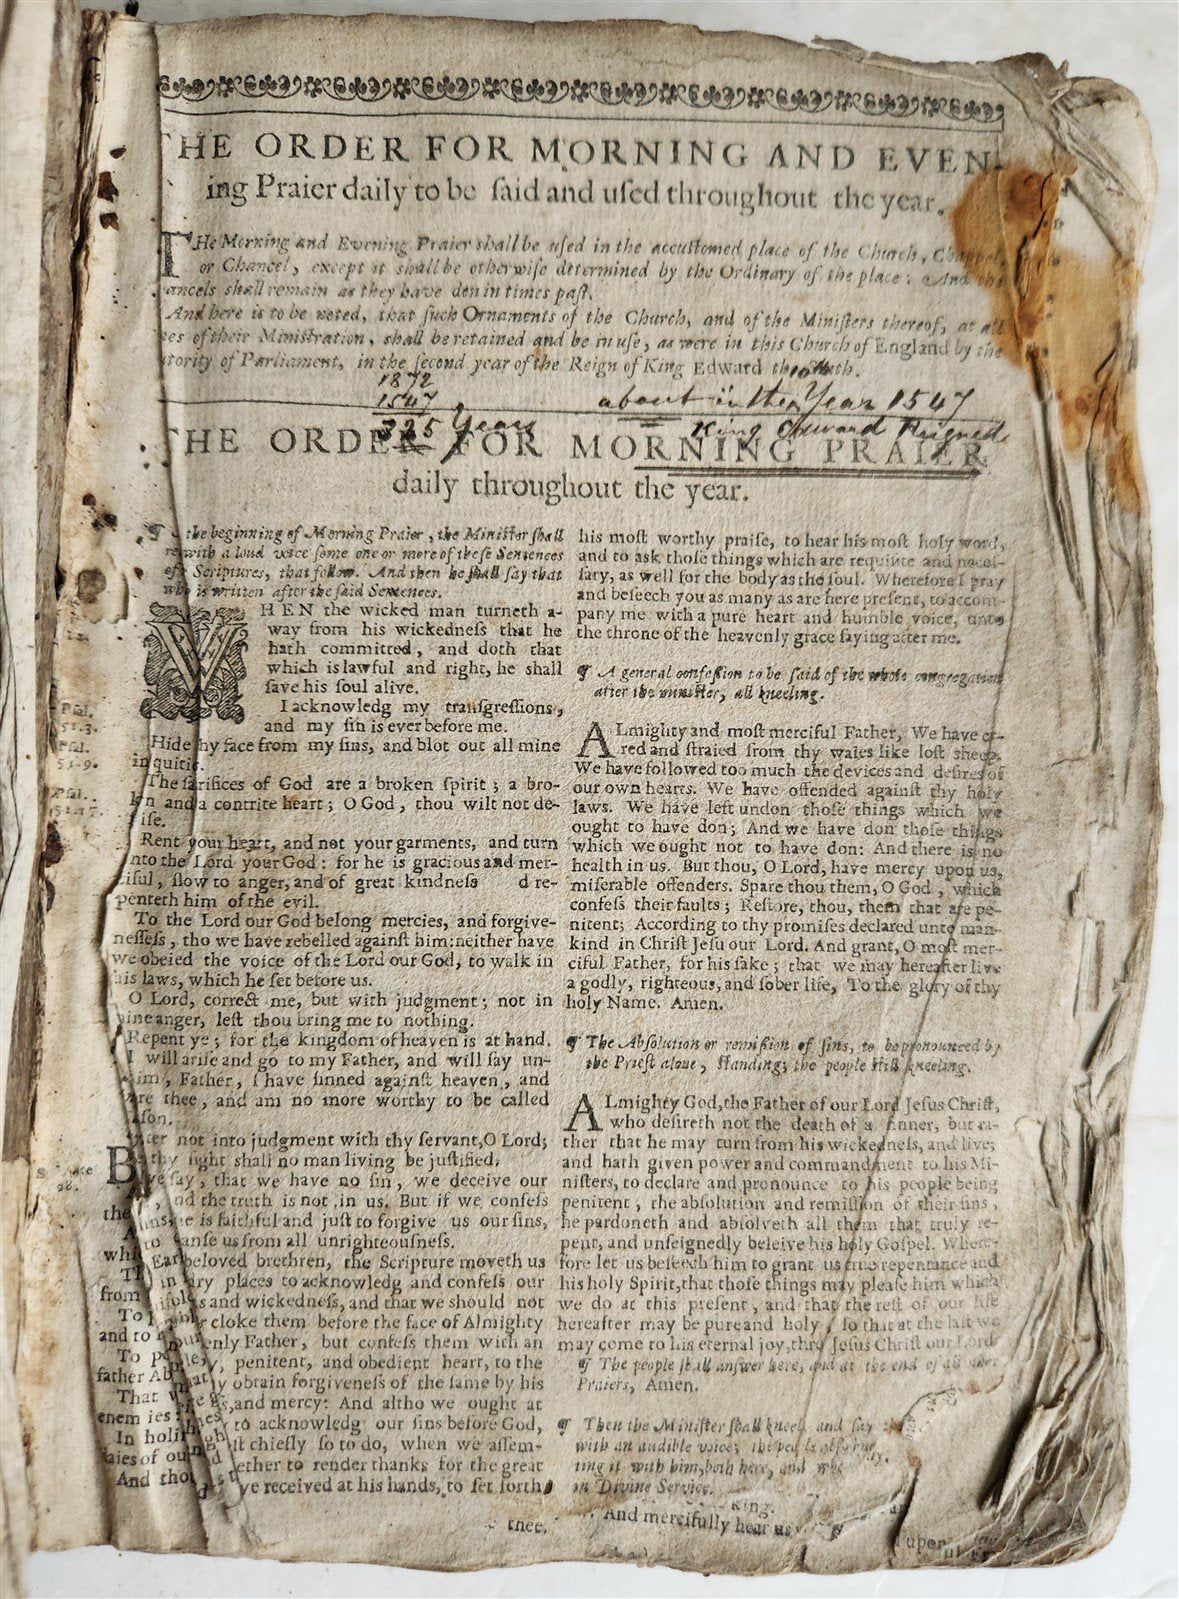 THE ORDER FOR MORNING AND EVEN-
ing Praier daily to be ſaid and uſed throughout the year.
THe Morning and Evening Praier shall be uſed in the accuſtomed place of the Church, Chappel,
or Chancel, except it shall be otherwiſe determined by the Ordinary of the place: And the
ancels shall remain as they have den in times paſt.
And here is to be noted, that ſuch Ornaments of the Church, and of the Miniſters thereof, at all
es of their Miniſtration, shall be retained and be in uſe, as were in this Church of England by the
tority of Parliament, in the ſecond year of the Reign of King Edward the
1872
1547
325 Years
about in the Year 1547
King Edward Reigned
THE ORDER FOR MORNING PRAIER
daily throughout the year.
¶ the beginning of Morning Praier, the Miniſter ſhall
re with a loud voice ſome one or more of theſe Sentences
of Scriptures, that follow. And then he ſhall ſay that
wh is written after the ſaid Sentences.
WHEN the wicked man turneth a-
way from his wickedneſs that he
hath committed, and doth that
which is lawful and right, he shall
ſave his ſoul alive.
I acknowledg my tranſgreſſions,
and my ſin is ever before me.
Pſal. 51.3.
Hide thy face from my ſins, and blot out all mine
iniquitie.
Pſal. 51.9.
The ſarifices of God are a broken ſpirit; a bro-
kn and a contrite heart; O God, thou wilt not de-
iſe.
Pſal. 51.17.
Rent your heart, and not your garments, and turn
nto the Lord your God: for he is gracious and mer-
ciful, ſlow to anger, and of great kindneſs d re-
penteth him of the evil.
To the Lord our God belong mercies, and forgive-
neſſeſs, tho we have rebelled againſt him: neither have
we obeied the voice of the Lord our God, to walk in
his laws, which he ſet before us.
O Lord, correct me, but with judgment; not in
hine anger, leſt thou bring me to nothing.
Repent ye; for the kingdom of heaven is at hand.
I will ariſe and go to my Father, and will ſay un-
him, Father, I have ſinned againſt heaven, and
re thee, and am no more worthy to be called
ſon.
ter not into judgment with thy ſervant, O Lord;
thy ſight shall no man living be juſtified.
we ſay, that we have no ſin, we deceive our
and the truth is not in us. But if we confeſs
ſins, he is faithful and juſt to forgive us our ſins,
to anſe us from all unrighteouſneſs.
Ear beloved brethren, the Scripture moveth us
in ry places to acknowledg and confeſs our
s and wickedneſs, and that we should not
cloke them before the face of Almighty
enly Father, but confeſs them with an
penitent, and obedient heart, to the
y obtain forgiveneſs of the ſame by his
s, and mercy: And altho we ought at
to acknowledg our ſins before God,
ſt chiefly ſo to do, when we aſſem-
ether to render thanks for the great
ve received at his hands, to ſet forth
B
the
whi
Th
from
To
and to
To
father Ab
That
enemies
In holi
daies of ou
And tho
thee.
his moſt worthy praiſe, to hear his moſt holy word,
and to ask thoſe things which are requiſite and neceſ-
ſary, as well for the body as the ſoul. Wherefore I pray
and beſeech you as many as are here preſent, to accom-
pany me with a pure heart and humble voice, unto
the throne of the heavenly grace ſaying after me.
¶ A general confeſſion to be ſaid of the whole congregation
after the miniſter, all kneeling.
ALmighty and moſt merciful Father, We have er-
red and ſtraied from thy waies like loſt sheep.
We have followed too much the devices and deſires of
our own hearts. We have offended againſt thy holy
laws. We have left undon thoſe things which we
ought to have don; And we have don thoſe things
which we ought not to have don: And there is no
health in us. But thou, O Lord, have mercy upon us,
miſerable offenders. Spare thou them, O God, which
confeſs their faults; Reſtore, thou, them that are pe-
nitent; According to thy promiſes declared unto man-
kind in Chriſt Jeſu our Lord. And grant, O moſt mer-
ciful Father, for his ſake; that we may hereafter live
a godly, righteous, and ſober life, To the glory of thy
holy Name. Amen.
¶ The Abſolution or remiſſion of ſins, to be pronounced by
the Prieſt alone, ſtanding; the people ſtill kneeling.
ALmighty God, the Father of our Lord Jeſus Chriſt,
who deſireth not the death of a ſinner, but ra-
ther that he may turn from his wickedneſs, and live;
and hath given power and commandment to his Mi-
niſters, to declare and pronounce to his people being
penitent, the abſolution and remiſſion of their ſins,
he pardoneth and abſolveth all them that truly re-
pent, and unfeignedly beleive his holy Goſpel. Where-
fore let us beſeech him to grant us true repentance and
his holy Spirit, that thoſe things may pleaſe him which
we do at this preſent, and that the reſt of our life
hereafter may be pure and holy, ſo that at the laſt we
may come to his eternal joy, thro Jeſus Chriſt our Lord.
¶ The people ſhall anſwer here, and at the end of all other
Praiers, Amen.
¶ Then the Miniſter ſhall kneel, and ſay
with an audible voice; the people alſo
ting it with him, both here, and
in Divine Service.
King.
And mercifully hear us
upon